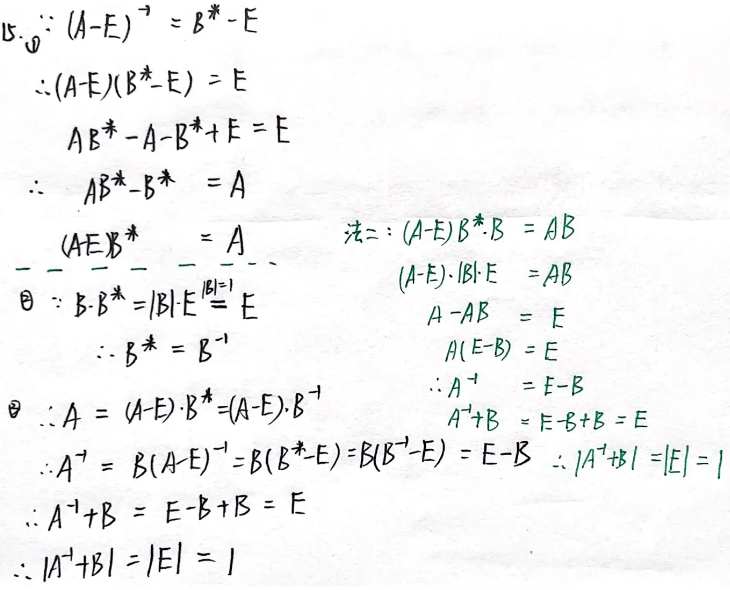 15. ① ∵ (A-E)⁻¹ = B* - E
∴ (A-E)(B*-E) = E
AB* - A - B* + E = E
∴ AB* - B* = A
(A-E)B* = A
② ∵ B·B* = |B|·E \overset{|B|=1}{=} E
∴ B* = B⁻¹
③ ∴ A = (A-E)·B* = (A-E)·B⁻¹
∴ A⁻¹ = B(A-E)⁻¹ = B(B*-E) = B(B⁻¹-E) = E-B
∴ A⁻¹+B = E-B+B = E
∴ |A⁻¹+B| = |E| = 1
法二: (A-E)B*·B = AB
(A-E)·|B|·E = AB
A - AB = E
A(E-B) = E
∴ A⁻¹ = E-B
A⁻¹+B = E-B+B = E
∴ |A⁻¹+B| = |E| = 1